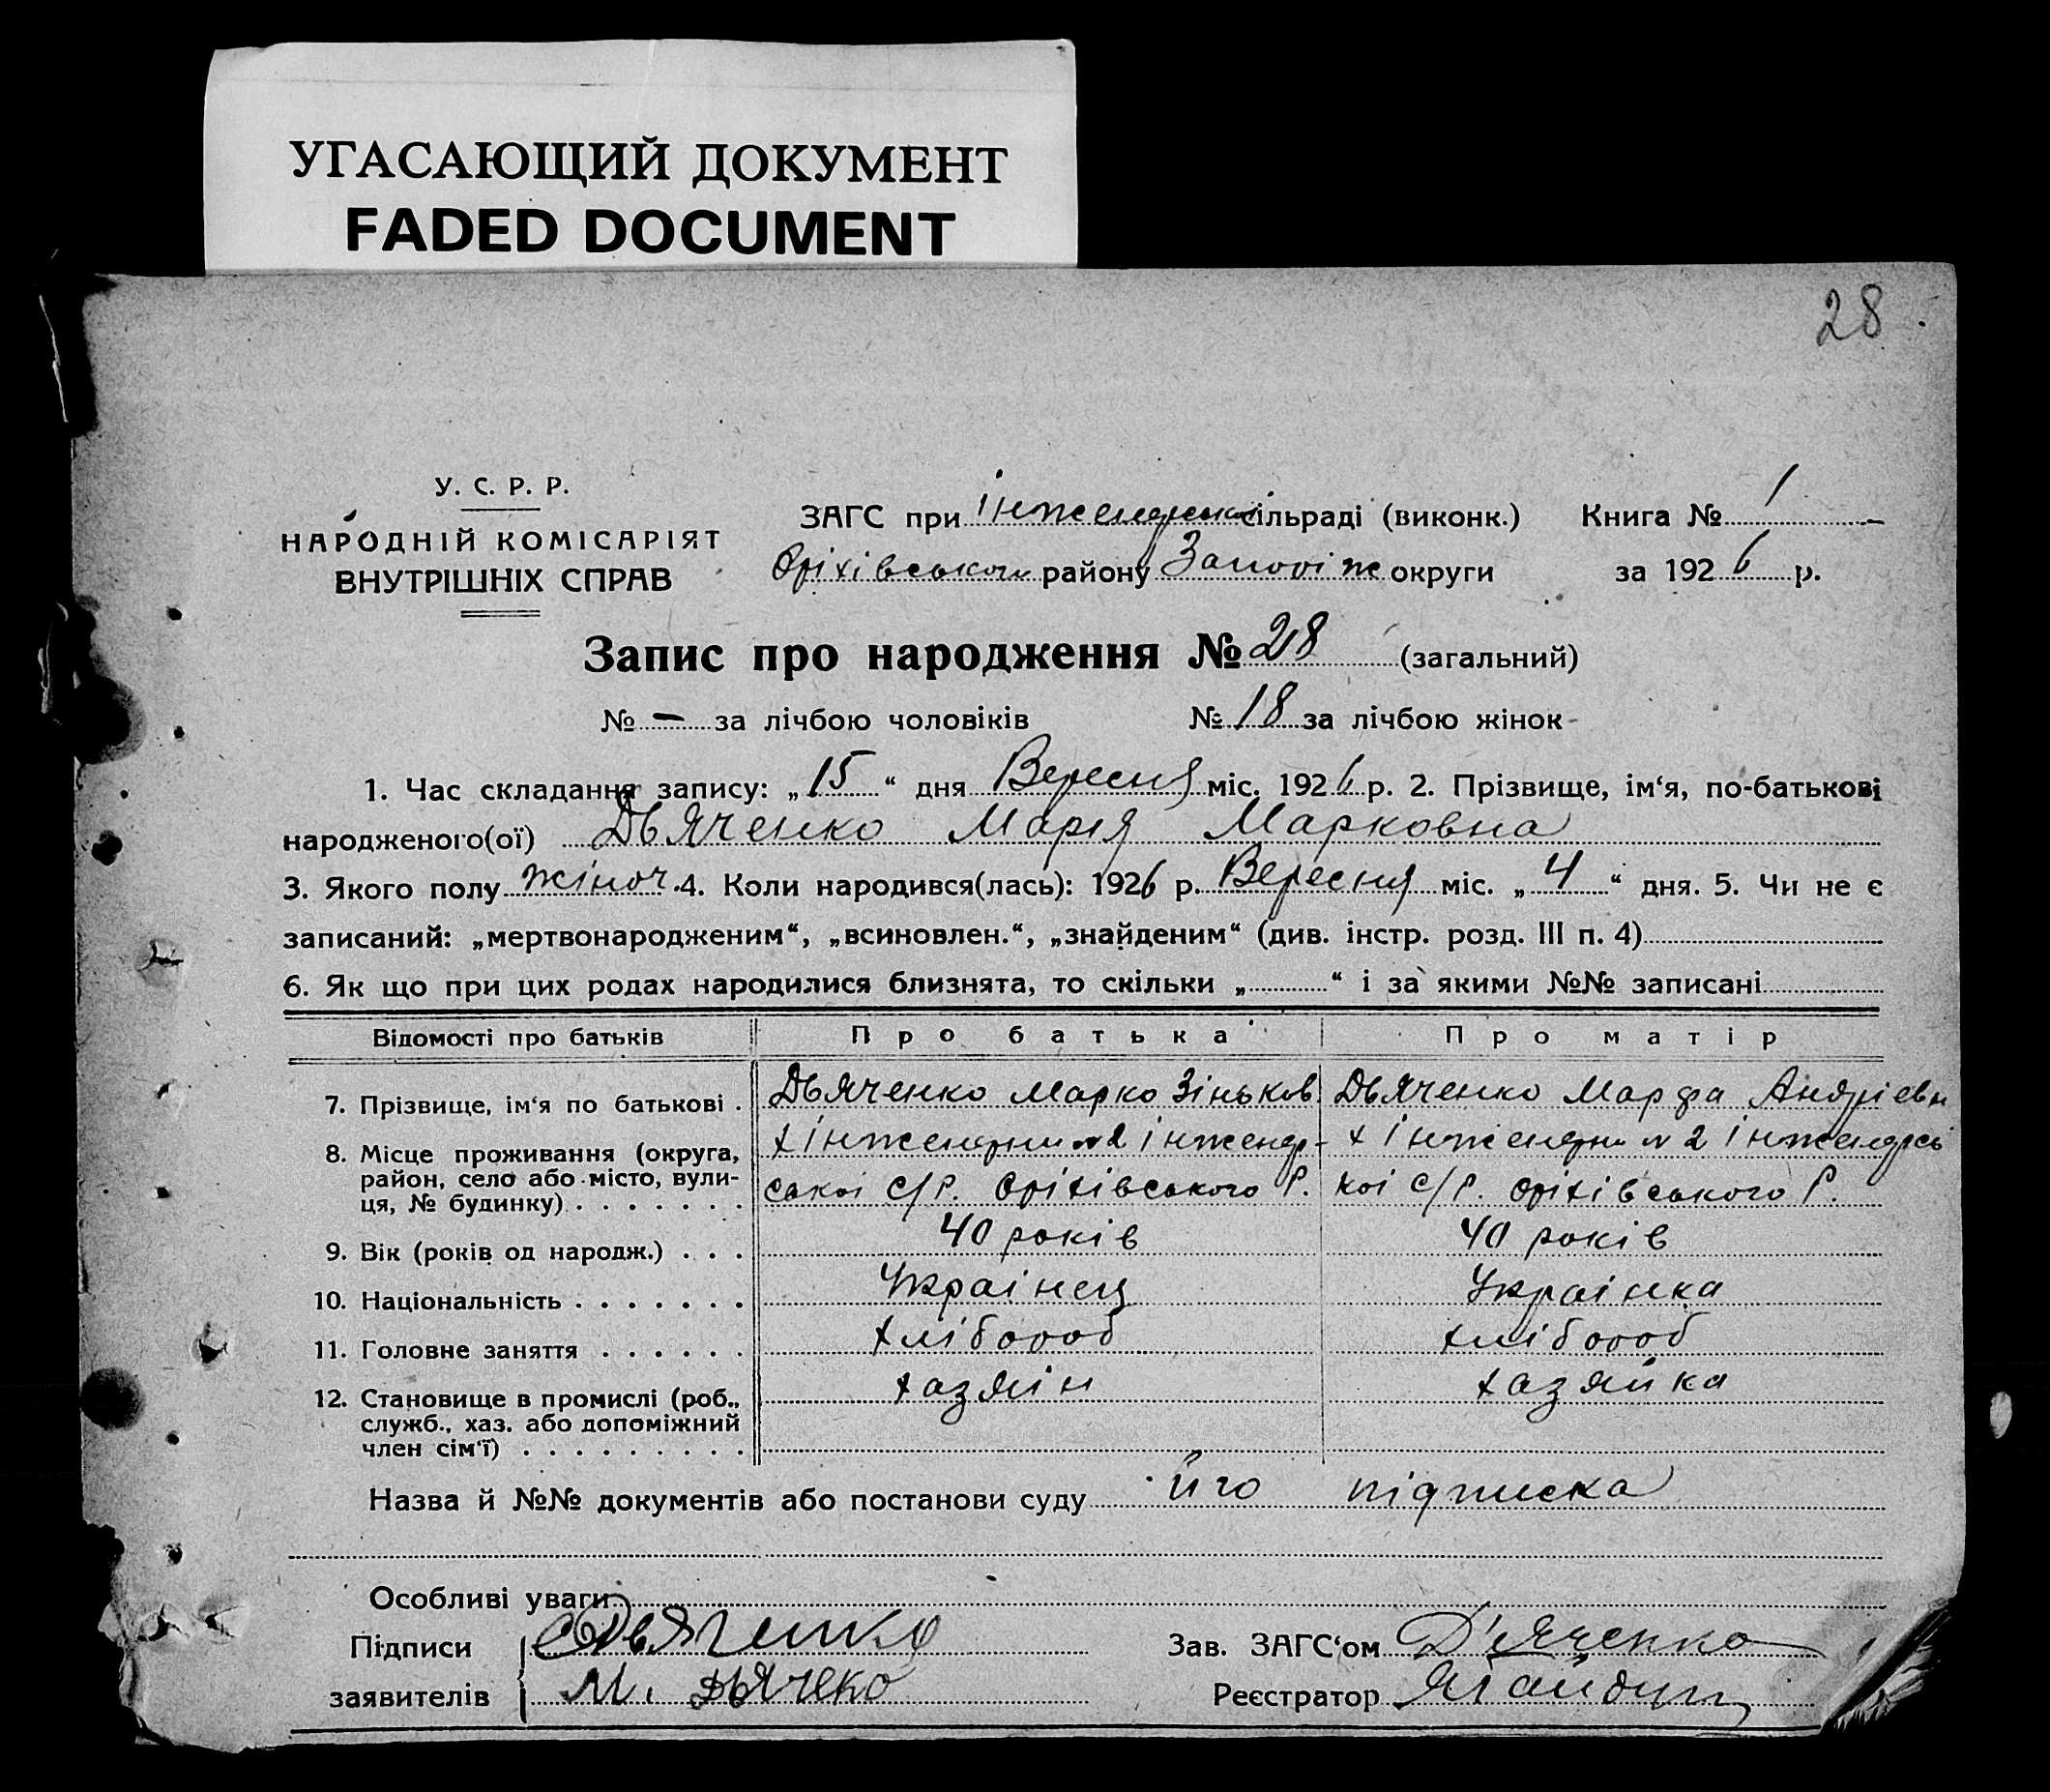 УГАСАЮЩИЙ ДОКУМЕНТ
FADED DOCUMENT
28
У. С. Р. Р.
НАРОДНІЙ КОМІСАРІЯТ
ВНУТРІШНІХ СПРАВ
ЗАГС при Інженерськ сільраді (виконк.) Книга № 1
Оріхівського району Запоріж округи за 1926 р.
Запис про народження № 28 (загальний)
№ — за лічбою чоловіків № 18 за лічбою жінок
1. Час складання запису: „15“ дня Вересня міс. 1926 р. 2. Прізвище, ім‘я, по-батькові
народженого(ої) Дьяченко Марія Марковна
3. Якого полу жіноч. 4. Коли народився(лась): 1926 р. Вересня міс. „4“ дня. 5. Чи не є
записаний: „мертвонародженим“, „всиновлен.“, „знайденим“ (див. інстр. розд. III п. 4)
6. Як що при цих родах народилися близнята, то скільки „ “ і за якими №№ записані
Відомості про батьків Про батька Про матір
7. Прізвище, ім‘я по батькові . Дьяченко Марко Зіньков. Дьяченко Марфа Андрієвн
8. Місце проживання (округа, х Інженерни №2 Інженер- х Інженерни №2 Інженерсь
район, село або місто, вули- ської С/Р. Оріхівського Р. кої С/Р. Оріхівського Р.
ця, № будинку) . . . . . . .
9. Вік (років од народж.) . . . 40 років 40 років
10. Національність . . . . . . . Украінец Украінка
11. Головне заняття . . . . . . хлібороб хлібороб
12. Становище в промислі (роб., хазяін хазяйка
служб., хаз. або допоміжний
член сім‘ї) . . . . . . . . .
Назва й №№ документів або постанови суду його підписка
Особливі уваги
Підписи Дьяченко Зав. ЗАГС‘ом Д'яченко
заявителів М. Дьячеко Реєстратор